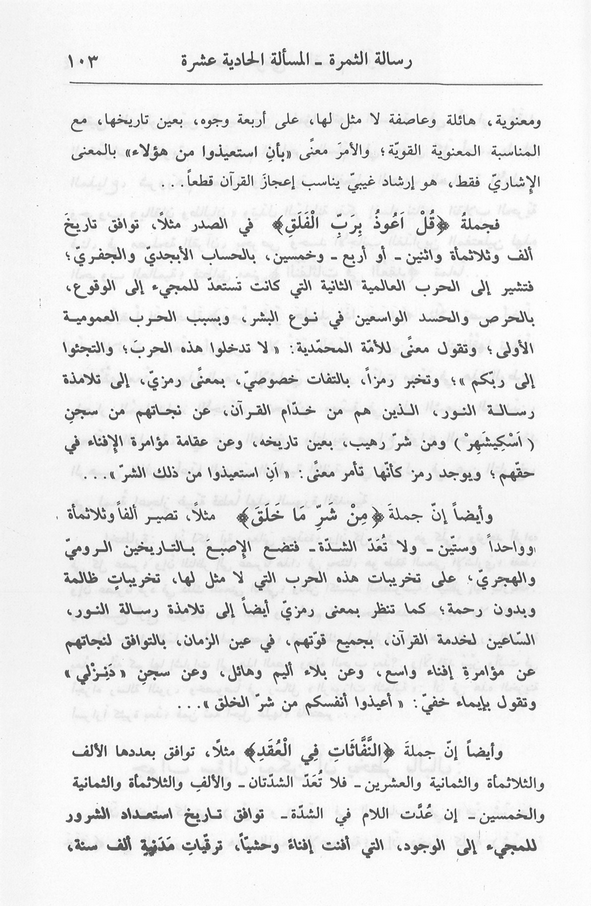 رسالة الثمرة ـ المسألة الحادية عشرة ١٠٣
ومعنوية، هائلة وعاصفة لا مثل لها، على أربعة وجوه، بعين تاريخها، مع
المناسبة المعنوية القويّة؛ والأمرَ معنًى «بأن استعيذوا من هؤلاء» بالمعنى
الإشاريّ فقط، هو إرشاد غيبيّ يناسب إعجازَ القرآن قطعاً...
فجملةُ ﴿قُلْ اَعُوذُ بِرَبِّ الْفَلَقِ﴾ في الصدر مثلًا، توافق تاريخَ
ألف وثلاثمأة واثنتين ـ أو أربع ـ وخمسين، بالحساب الأبجديّ والجفري؛
فتشير إلى الحرب العالمية الثانية التي كانت تستعدّ للمجيء إلى الوقوع،
بالحرص والحسد الواسعين في نوع البشر، وبسبب الحرب العمومية
الأولى؛ وتقول معنًى للأمّة المحمّدية: « لا تدخلوا هذه الحربَ؛ والتجئوا
إلى ربّكم »؛ وتخبر رمزاً، بالتفات خصوصيّ، بمعنًى رمزيّ، إلى تلامذة
رسالة النور، الذين هم من خدّام القرآن، عن نجاتهم من سجنِ
( اَسْكِيشَهِرْ ) ومن شرّ رهيب، بعين تاريخه، وعن عقامة مؤامرة الإفناء في
حقّهم ؛ ويوجد رمز كأنّها تأمر معنًى: « اَنِ استعيذوا من ذلك الشرّ »...
وأيضاً إنّ جملةَ ﴿مِنْ شَرِّ مَا خَلَقَ﴾ مثلًا، تصير ألفاً وثلاثمأة
وواحداً وستّين ـ ولا تُعَدّ الشدّة ـ فتضع الإصبع بالتاريخين الروميّ
والهجري؛ على تخريبات هذه الحرب التي لا مثل لها، تخريباتٍ ظالمة
وبدون رحمة؛ كما تنظر بمعنى رمزيّ أيضاً إلى تلامذة رسالة النور،
السّاعين لخدمة القرآن، بجميع قوّتهم، في عين الزمان، بالتوافق لنجاتهم
عن مؤامرةِ إفناء واسع، وعن بلاء أليم وهائل، وعن سجنِ « دَنِزْلي »
وتقول بإيماء خفيّ: « أعيذوا أنفسكم من شرّ الخلق »...
وأيضاً إنّ جملة ﴿النَّفَّاثَاتِ فِي الْعُقَدِ﴾ مثلًا، توافق بعددها الألف
والثلاثمأة والثمانية والعشرين ـ فلا تُعَدّ الشدّتان ـ والألفِ والثلاثمأة والثمانية
والخمسين ـ إن عُدَّت اللام في الشدّة ـ توافق تاريخ استعداد الشرور
للمجيء إلى الوجود، التي أفنت إفناءً وحشيّاً، ترقياتِ مَدَنِيةِ ألف سنة،